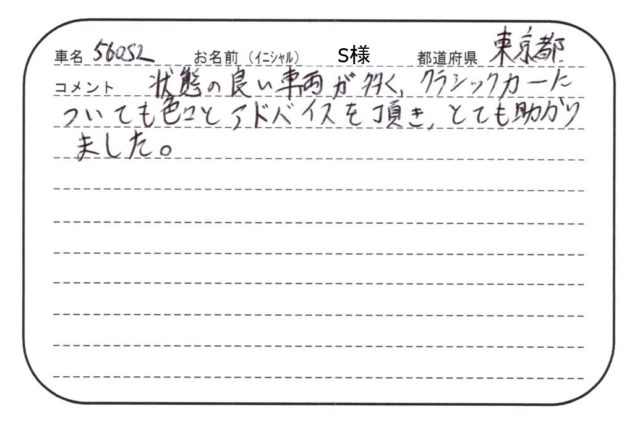 車名 560SL お名前（ｲﾆｼｬﾙ） S様 都道府県 東京都
コメント 状態の良い車両が多く、クラシックカーに
ついても色々とアドバイスを頂き、とても助かり
ました。